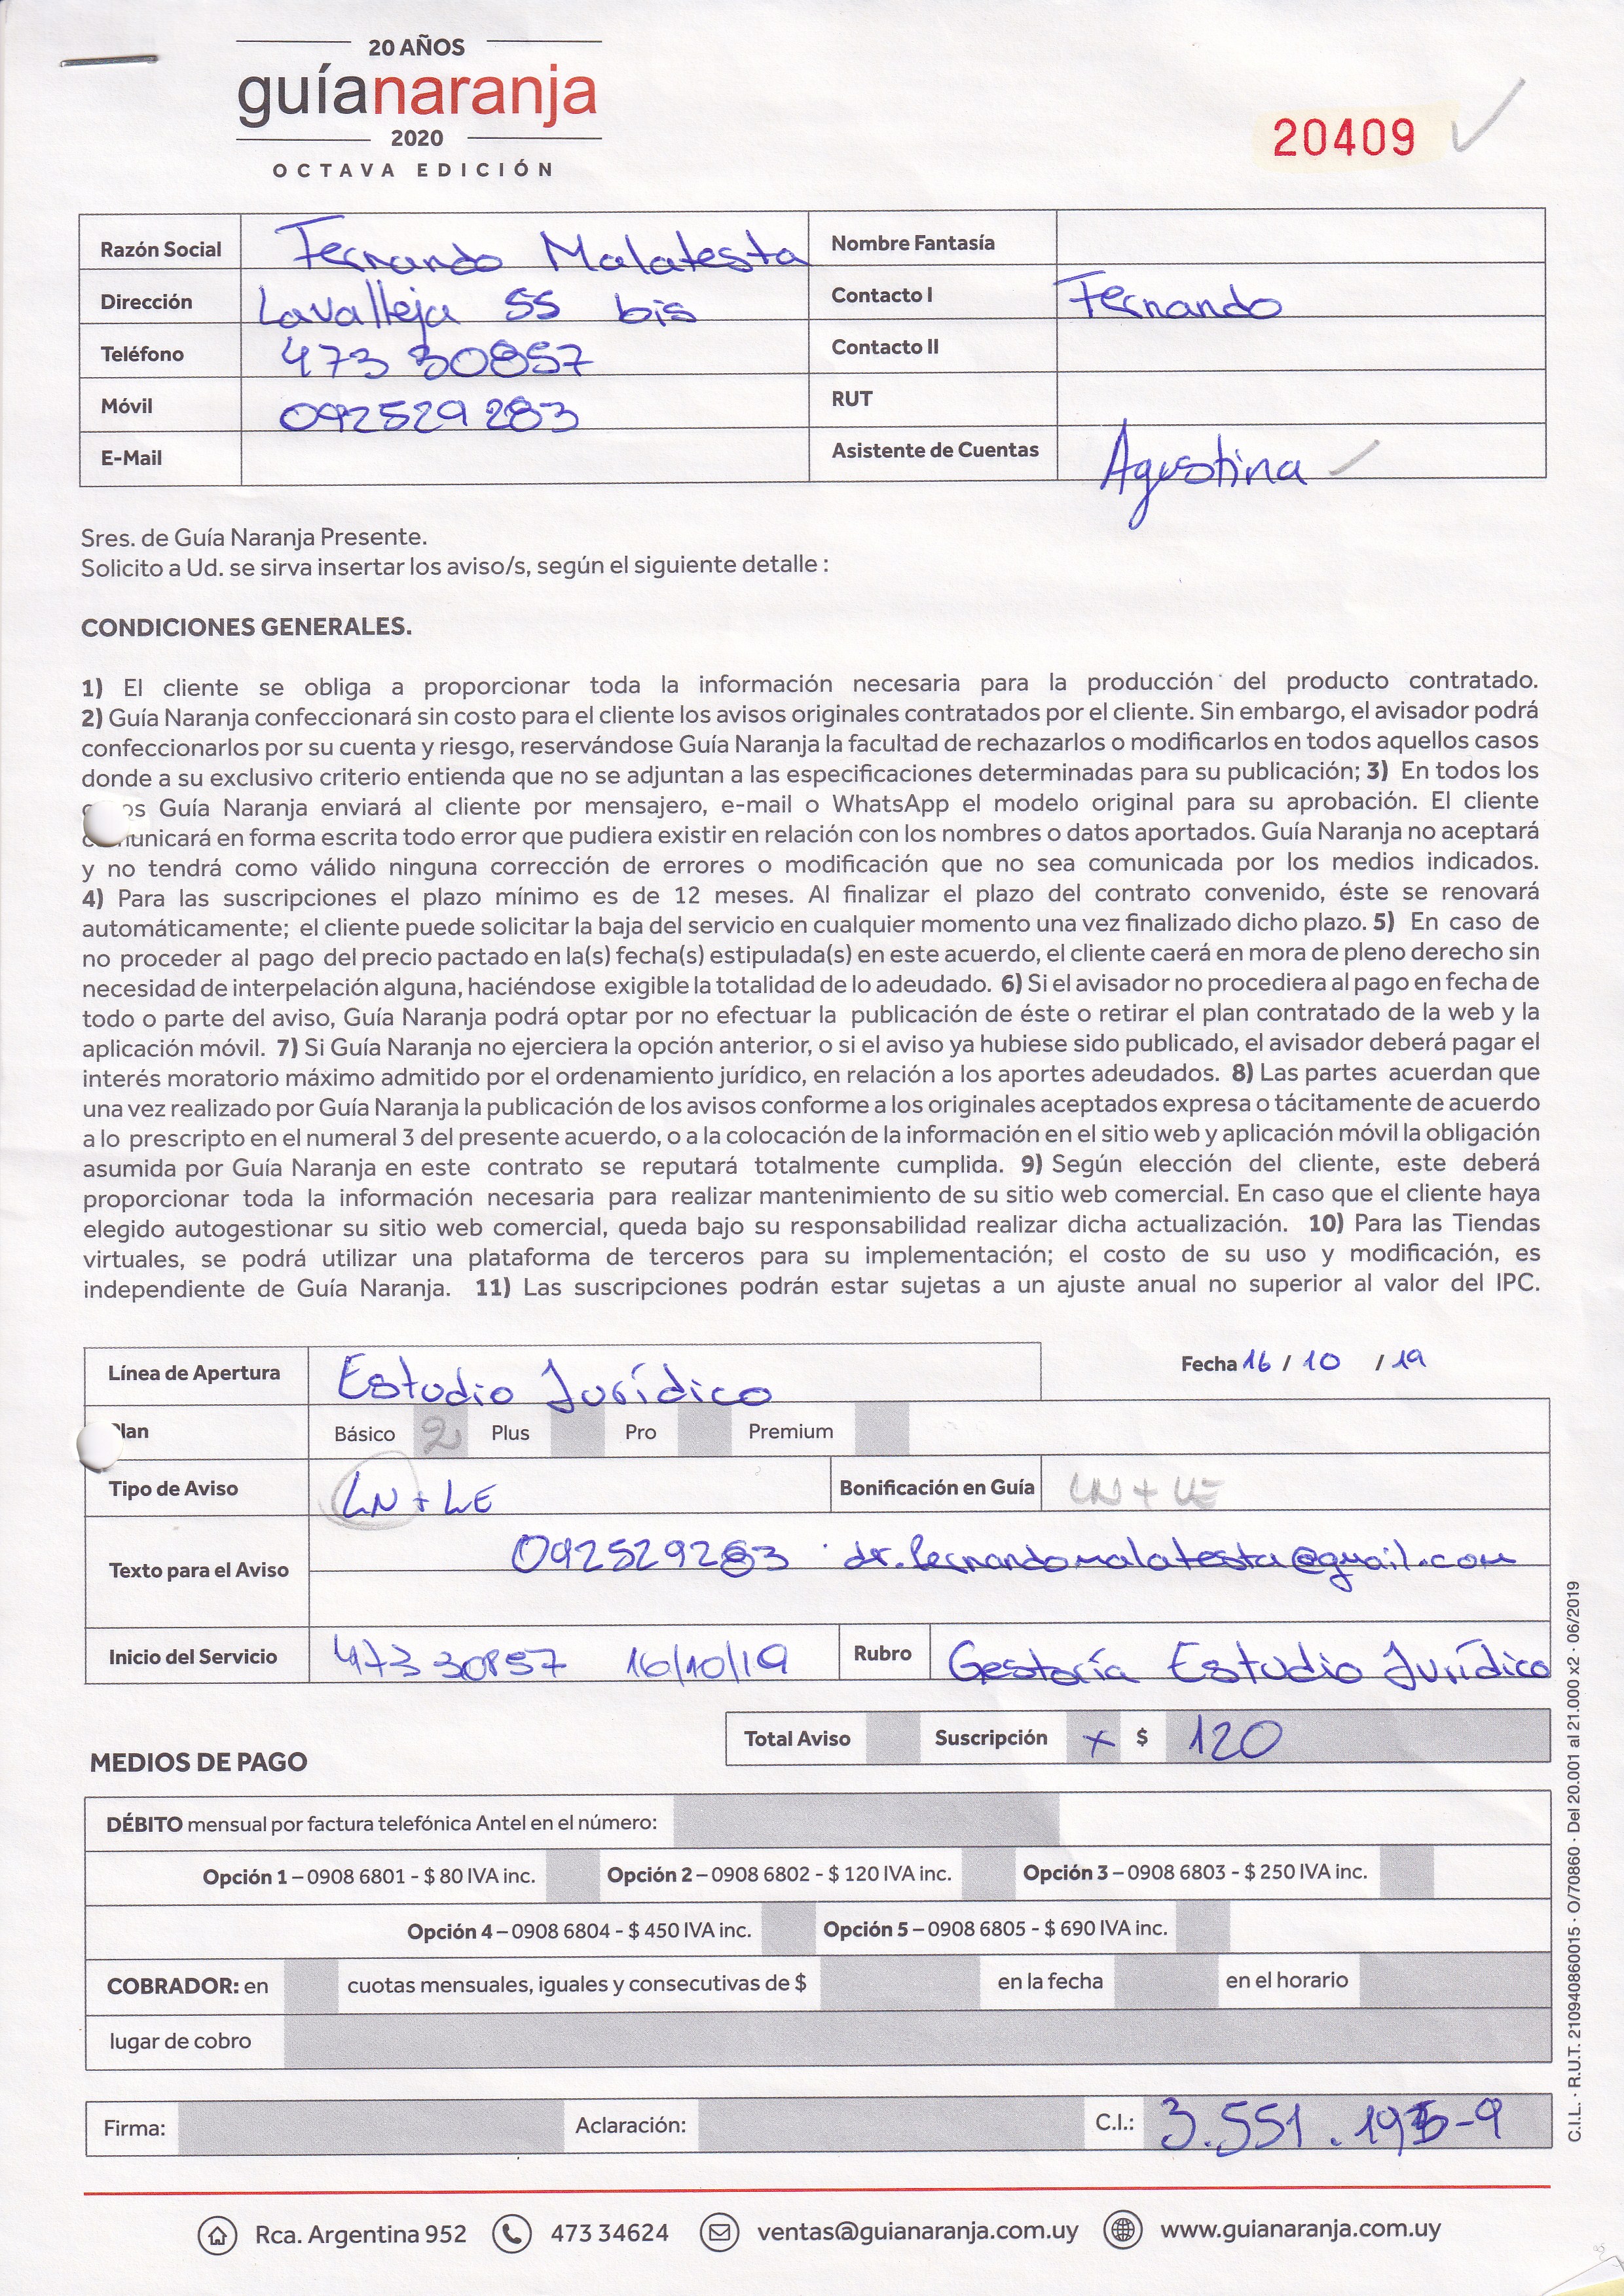 20 AÑOS
guíanaranja
2020
OCTAVA EDICIÓN
20409
Razón Social Fernando Malatesta Nombre Fantasía
Dirección Lavalleja 55 bis Contacto I Fernando
Teléfono 473 30857 Contacto II
Móvil 092529283 RUT
E-Mail Asistente de Cuentas Agostina
Sres. de Guía Naranja Presente.
Solicito a Ud. se sirva insertar los aviso/s, según el siguiente detalle :
CONDICIONES GENERALES.
1) El cliente se obliga a proporcionar toda la información necesaria para la producción del producto contratado.
2) Guía Naranja confeccionará sin costo para el cliente los avisos originales contratados por el cliente. Sin embargo, el avisador podrá
confeccionarlos por su cuenta y riesgo, reservándose Guía Naranja la facultad de rechazarlos o modificarlos en todos aquellos casos
donde a su exclusivo criterio entienda que no se adjuntan a las especificaciones determinadas para su publicación; 3) En todos los
Guía Naranja enviará al cliente por mensajero, e-mail o WhatsApp el modelo original para su aprobación. El cliente
en forma escrita todo error que pudiera existir en relación con los nombres o datos aportados. Guía Naranja no aceptará
y no tendrá como válido ninguna corrección de errores o modificación que no sea comunicada por los medios indicados.
4) Para las suscripciones el plazo mínimo es de 12 meses. Al finalizar el plazo del contrato convenido, éste se renovará
automáticamente; el cliente puede solicitar la baja del servicio en cualquier momento una vez finalizado dicho plazo. 5) En caso de
no proceder al pago del precio pactado en la(s) fecha(s) estipulada(s) en este acuerdo, el cliente caerá en mora de pleno derecho sin
necesidad de interpelación alguna, haciéndose exigible la totalidad de lo adeudado. 6) Si el avisador no procediera al pago en fecha de
todo o parte del aviso, Guía Naranja podrá optar por no efectuar la publicación de éste o retirar el plan contratado de la web y la
aplicación móvil. 7) Si Guía Naranja no ejerciera la opción anterior, o si el aviso ya hubiese sido publicado, el avisador deberá pagar el
interés moratorio máximo admitido por el ordenamiento jurídico, en relación a los aportes adeudados. 8) Las partes acuerdan que
una vez realizado por Guía Naranja la publicación de los avisos conforme a los originales aceptados expresa o tácitamente de acuerdo
a lo prescripto en el numeral 3 del presente acuerdo, o a la colocación de la información en el sitio web y aplicación móvil la obligación
asumida por Guía Naranja en este contrato se reputará totalmente cumplida. 9) Según elección del cliente, este deberá
proporcionar toda la información necesaria para realizar mantenimiento de su sitio web comercial. En caso que el cliente haya
elegido autogestionar su sitio web comercial, queda bajo su responsabilidad realizar dicha actualización. 10) Para las Tiendas
virtuales, se podrá utilizar una plataforma de terceros para su implementación; el costo de su uso y modificación, es
independiente de Guía Naranja. 11) Las suscripciones podrán estar sujetas a un ajuste anual no superior al valor del IPC.
Línea de Apertura Estudio Jurídico Fecha 16 / 10 / 19
Plan Básico 2 Plus Pro Premium
Tipo de Aviso LN + LE Bonificación en Guía LN + LE
Texto para el Aviso 092529283 dr.fernandomalatesta@gmail.com
Inicio del Servicio 473 30857 16/10/19 Rubro Gestoría Estudio Jurídico
Total Aviso Suscripción x $ 120
MEDIOS DE PAGO
DÉBITO mensual por factura telefónica Antel en el número:
Opción 1 – 0908 6801 - $ 80 IVA inc. Opción 2 – 0908 6802 - $ 120 IVA inc. Opción 3 – 0908 6803 - $ 250 IVA inc.
Opción 4 – 0908 6804 - $ 450 IVA inc. Opción 5 – 0908 6805 - $ 690 IVA inc.
COBRADOR: en cuotas mensuales, iguales y consecutivas de $ en la fecha en el horario
lugar de cobro
Firma: Aclaración: C.I.:
Rca. Argentina 952 473 34624 ventas@guianaranja.com.uy www.guianaranja.com.uy
C.I.L. · R.U.T. 210940860015 · O/70860 · Del 20.001 al 21.000 x2 · 06/2019